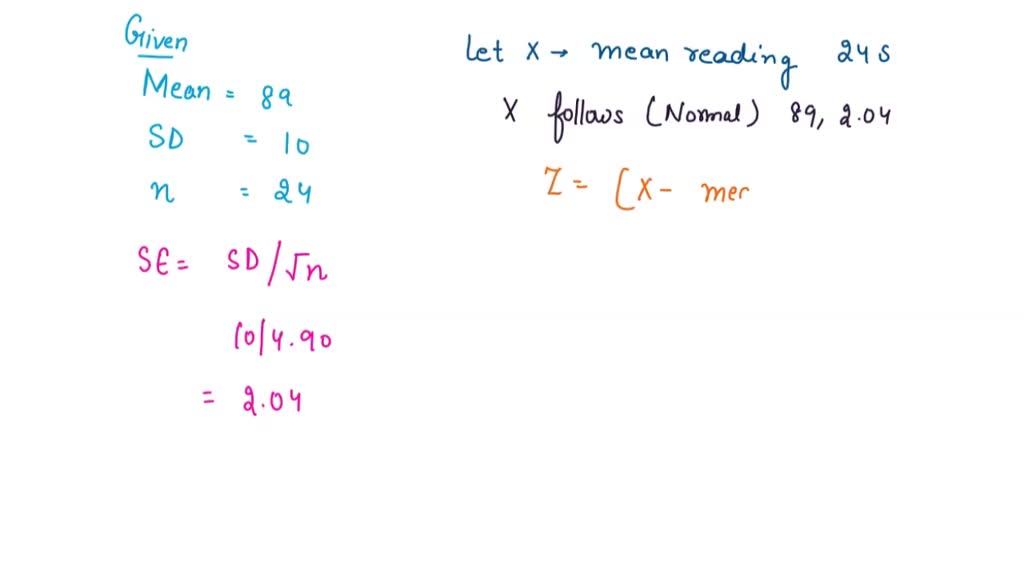 Given
Mean = 89
SD = 10
n = 24
SE = SD/√n
10/4.90
= 2.04
Let X → mean reading 24 S
X follows (Normal) 89, 2.04
Z = [X - mer